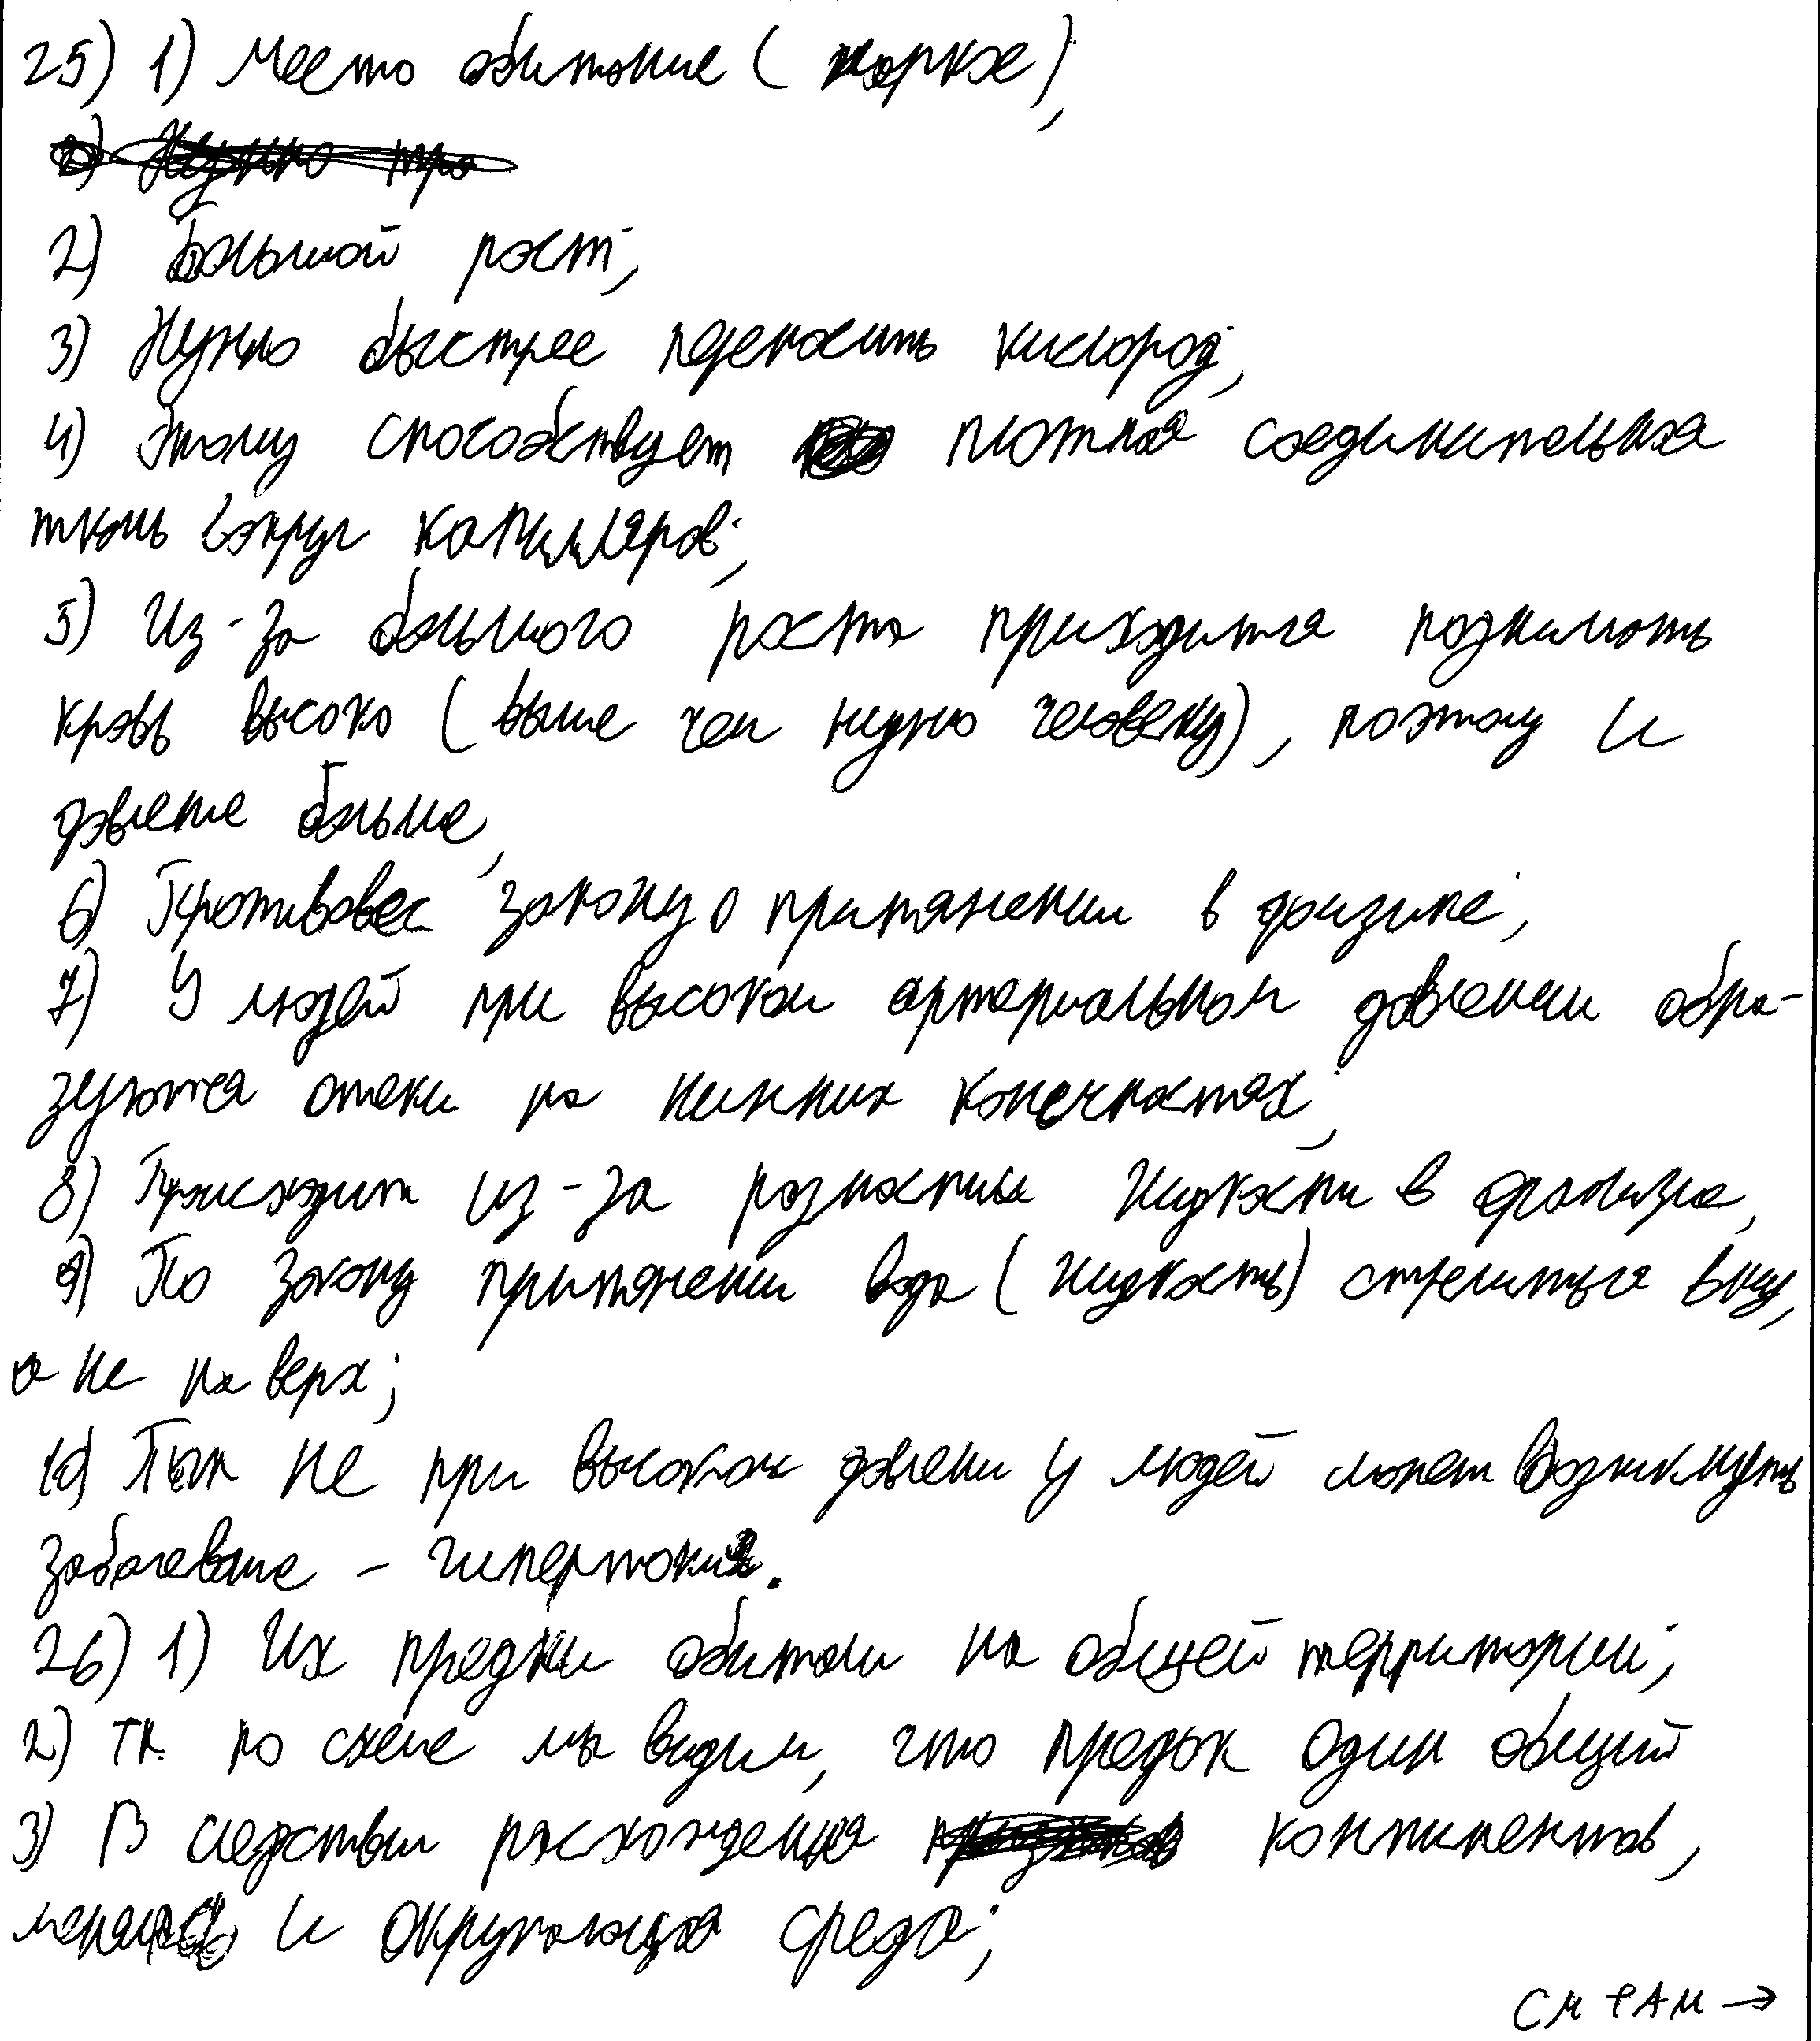 25) 1) Место обитание (жаркае);
2) Большой рост;
3) Нужно быстрее переносить кислород;
4) Этому способствует плотная соединительная
ткань вокруг капилляров;
5) Из-за большого роста приходится поднимать
кровь высоко (выше чем нужно человеку), поэтому и
давлене больше;
6) Противовес закону о притяжении в физике;
7) У людей при высоком артериальном давлении обра-
зуются отеки на нижних конечностях;
8) Происходит из-за жидкости в
9) По закону притяжении вода (жидкость) стремиться вниз,
а не на верх;
10) Так же при высоком давлени у людей может возникнуть
заболевание - гипертония.
26) 1) Их предки обитали на общей территории;
2) тк. по схеме мы видим, что предок один общий
3) В следствии расхождения континентов,
и окружающая среда;
СМ ТАМ →